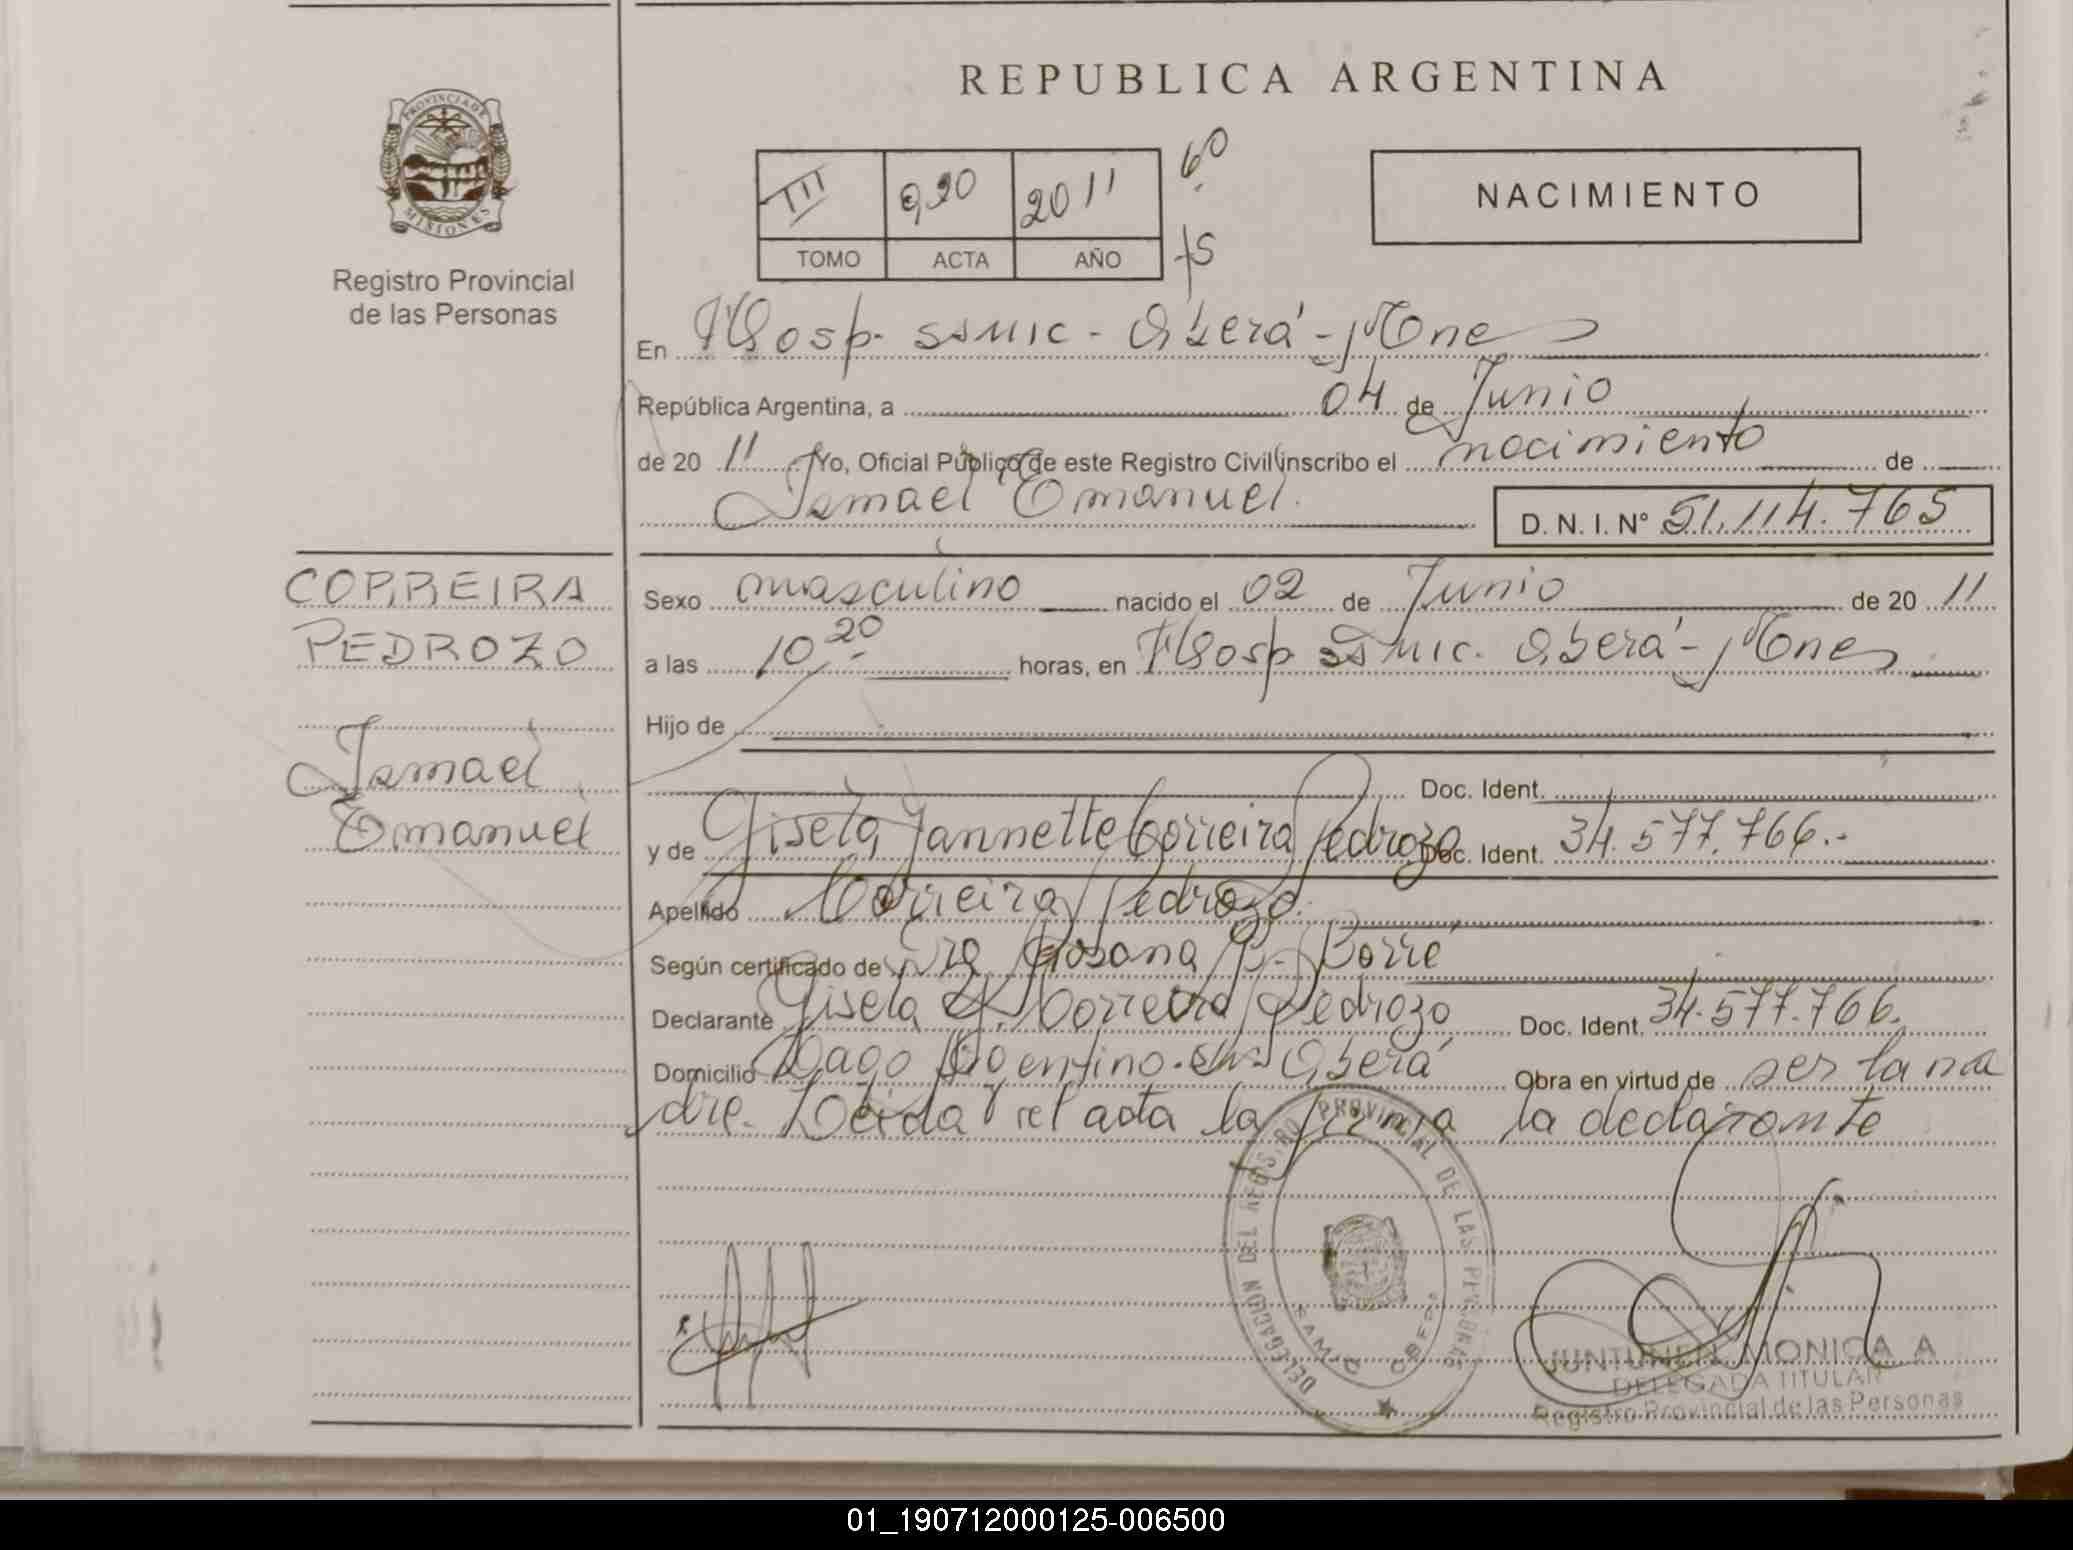 REPUBLICA ARGENTINA
PROVINCIA DE
MISIONES
Registro Provincial
de las Personas
III 920 2011
TOMO ACTA AÑO
60
75
NACIMIENTO
En Hosp. SAMIC - Oberá - Mnes
República Argentina, a 04 de Junio
de 20 11 Yo, Oficial Público de este Registro Civil inscribo el nacimiento de
Ismael Emanuel.
D. N. I. N° 51.114.765
CORREIRA
PEDROZO
Ismael
Emanuel
Sexo masculino nacido el 02 de Junio de 20 11
a las 10 20 horas, en Hosp SAMIC. Oberá - Mnes
Hijo de
Doc. Ident.
y de Gisela Jannette Correira Pedrozo Doc. Ident. 34.577.766.-
Apellido Correira Pedrozo.
Según certificado de Dra Rosana Borré
Declarante Gisela J. Correira Pedrozo Doc. Ident. 34.577.766.
Domicilio Lago Argentino. S/N- Oberá Obra en virtud de ser la ma
dre. Leida el acta la firma la declarante
DELEGACION DEL REGISTRO PROVINCIAL DE LAS PERSONAS
SAMIC OBERA
JUNTUNEN, MONICA A
DELEGADA TITULAR
Registro Provincial de las Personas
01_190712000125-006500